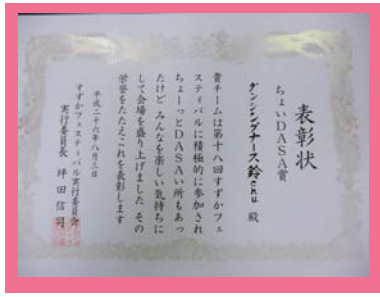 表彰状
ちょいDASA賞
ダンシングナース鈴chu 殿
貴チームは第十八回すずかフェ
スティバルに積極的に参加され
ちょーっとDASAい所もあっ
たけど みんなを楽しい気持ちに
して会場を盛り上げました その
栄誉をたたえこれを表彰します
平成二十六年八月三日
すずかフェスティバル実行委員会
実行委員長 坪田信司